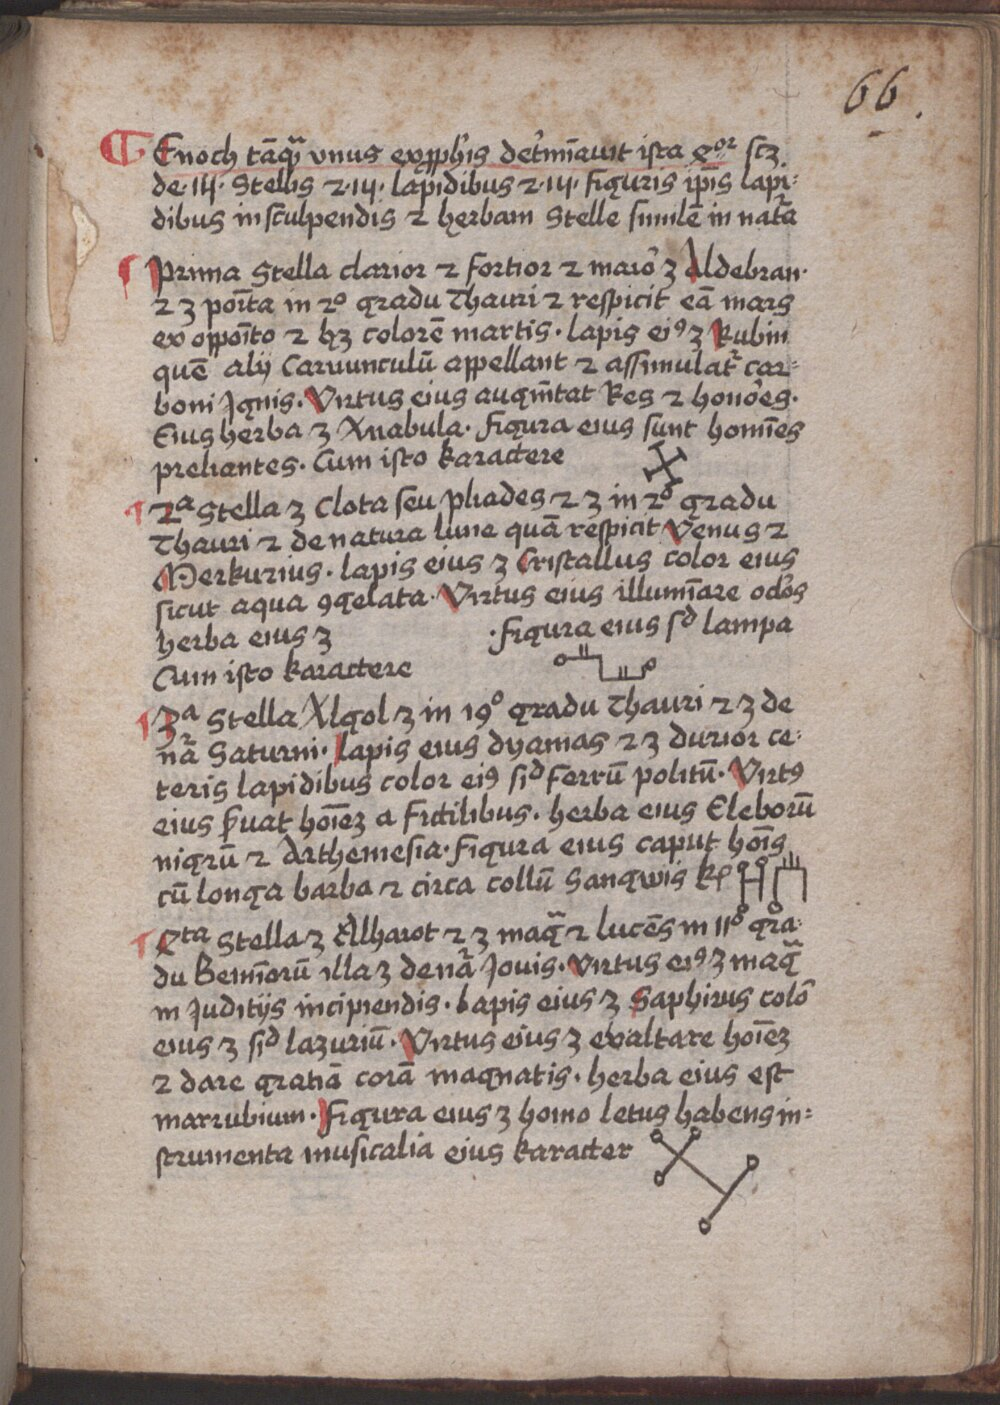 66.
Enoch tāqᷓ vnus ex ꝓphis det'mīauit ista 4or scꝫ
de · IIIJ · Stellis ⁊ · IIIJ · lapidibus ⁊ · IIIJ · figuris ip̄is lapi:
dibus insculpendis ⁊ herbam Stelle similē in nat̄a
Prima Stella clarior ⁊ fortior ⁊ maio' ꝫ Aldebran ·
⁊ ꝫ poīta in 2o gradu Thauri ⁊ respicit eā mars
ex oppoīto ⁊ hꝫ colorē martis · lapis eiꝰ ꝫ Rubin
quē alij Caruunculū appellant ⁊ assimulat' car:
boni Jgnis · Virtus eius augm̄tat Res ⁊ hono'es ·
Eius herba ꝫ Anabula · figura eius sunt homīes
preliantes · Cum isto karactere
2a Stella ꝫ Clota seu pliades ⁊ ꝫ in 2o gradu
Thauri ⁊ de natura lune quā respicit Venus ⁊
Merkurius · lapis eius ꝫ Cristallus color eius
sicut aqua ꝯgelata · Virtus eius illumīare oc'los
herba eius ꝫ · figura eius sd lampa
Cum isto karactere
3a Stella Algol ꝫ in 19o gradu Thauri ⁊ ꝫ de
nā Saturni · Lapis eius dyamas ⁊ ꝫ durior ce:
teris lapidibus color eiꝰ sid ferrū politū · Virtꝰ
eius s'uat hoīeꝫ a fictilibus · herba eius Eleborū
nigrū ⁊ Arthemesia · figura eius caput hoīs
cū longa barba ⁊ circa collū Sangwis kr
4ta Stella ꝫ Alhaiot ⁊ ꝫ magᷓ ⁊ lucēs in 11o gra:
du Gemīorū illa ꝫ de nā Jouis · Virtus eiꝰ ꝫ magᷓ
in Juditijs incipiendis · Lapis eius ꝫ Saphirus colo'
eius ꝫ sid lazuriū · Virtus eius ꝫ exaltare hoīeꝫ
⁊ dare gratiā corā magnatis · herba eius est
marrubium · Figura eius ꝫ homo letus habens in:
strumenta musicalia eius karacter